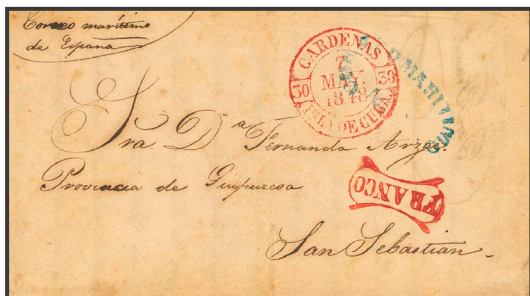 Correo marítimo
de España
CARDENAS
7
MAY.
1848
30 30
ISLA DE CUBA
Sra. Dª Fernanda Arzac.
Provincia de Guipuzcoa
FRANCO
San Sebastian.